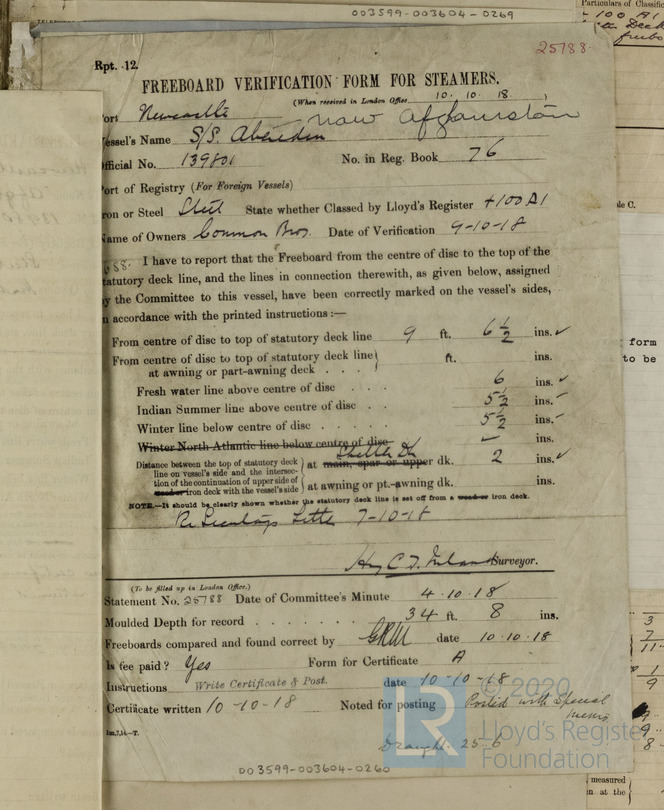 003599-003604-0269
Particulars of Classific
100 A1
freebo
25788.
Rpt. 12.
FREEBOARD VERIFICATION FORM FOR STEAMERS.
(When received in London Office 10.10.18.)
ort Newcastle
now Afghanistan
essel's Name S/S. Aberdeen
fficial No. 139801 No. in Reg. Book 76
ort of Registry (For Foreign Vessels)
ron or Steel Steel State whether Classed by Lloyd's Register +100A1
ame of Owners Common Bros. Date of Verification 9-10-18
I have to report that the Freeboard from the centre of disc to the top of the
tatutory deck line, and the lines in connection therewith, as given below, assigned
y the Committee to this vessel, have been correctly marked on the vessel's sides,
n accordance with the printed instructions :—
From centre of disc to top of statutory deck line 9 ft. 6½ ins. ✓
From centre of disc to top of statutory deck line
at awning or part-awning deck . . . ft. ins.
Fresh water line above centre of disc . . . 6 ins. ✓
Indian Summer line above centre of disc . . 5½ ins.
Winter line below centre of disc . . . . . 5½ ins.
Winter North Atlantic line below centre of disc ✓ ins.
Distance between the top of statutory deck
line on vessel's side and the intersec-
tion of the continuation of upper side of
wood or iron deck with the vessel's side
at main, spar or upper dk. Shelter Dk 2 ins. ✓
at awning or pt.-awning dk. ins.
NOTE.—It should be clearly shown whether the statutory deck line is set off from a wood or iron deck.
Letter 7-10-18
Surveyor.
(To be filled up in London Office.)
Statement No. 25788 Date of Committee's Minute 4.10.18
Moulded Depth for record . . . . . . . 34 ft. 8 ins.
Freeboards compared and found correct by date 10.10.18
Is fee paid? Yes Form for Certificate A
Instructions Write Certificate & Post. date 10-10-18
Certificate written 10-10-18 Noted for posting Posted with Special
memo
Draught 25.6
Im,7,14.—T.
003599-003604-0260
LR
© 2020
Lloyd's Register
Foundation
le C.
form
to be
3
7
11
1
9
9
9
8
measured
n at the